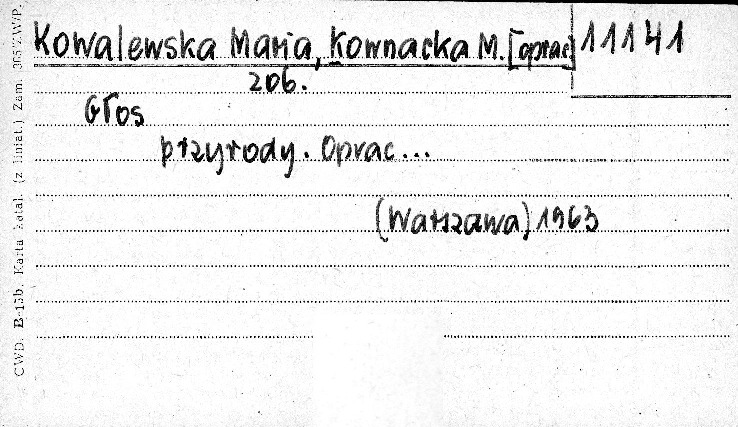 Kowalewska Maria, Kownacka M. [oprac] 11141
zob.
Głos
przyrody. Oprac...
(Warszawa) 1963
CWD. B-15b. Karta katal. (z liniat.) Zam.